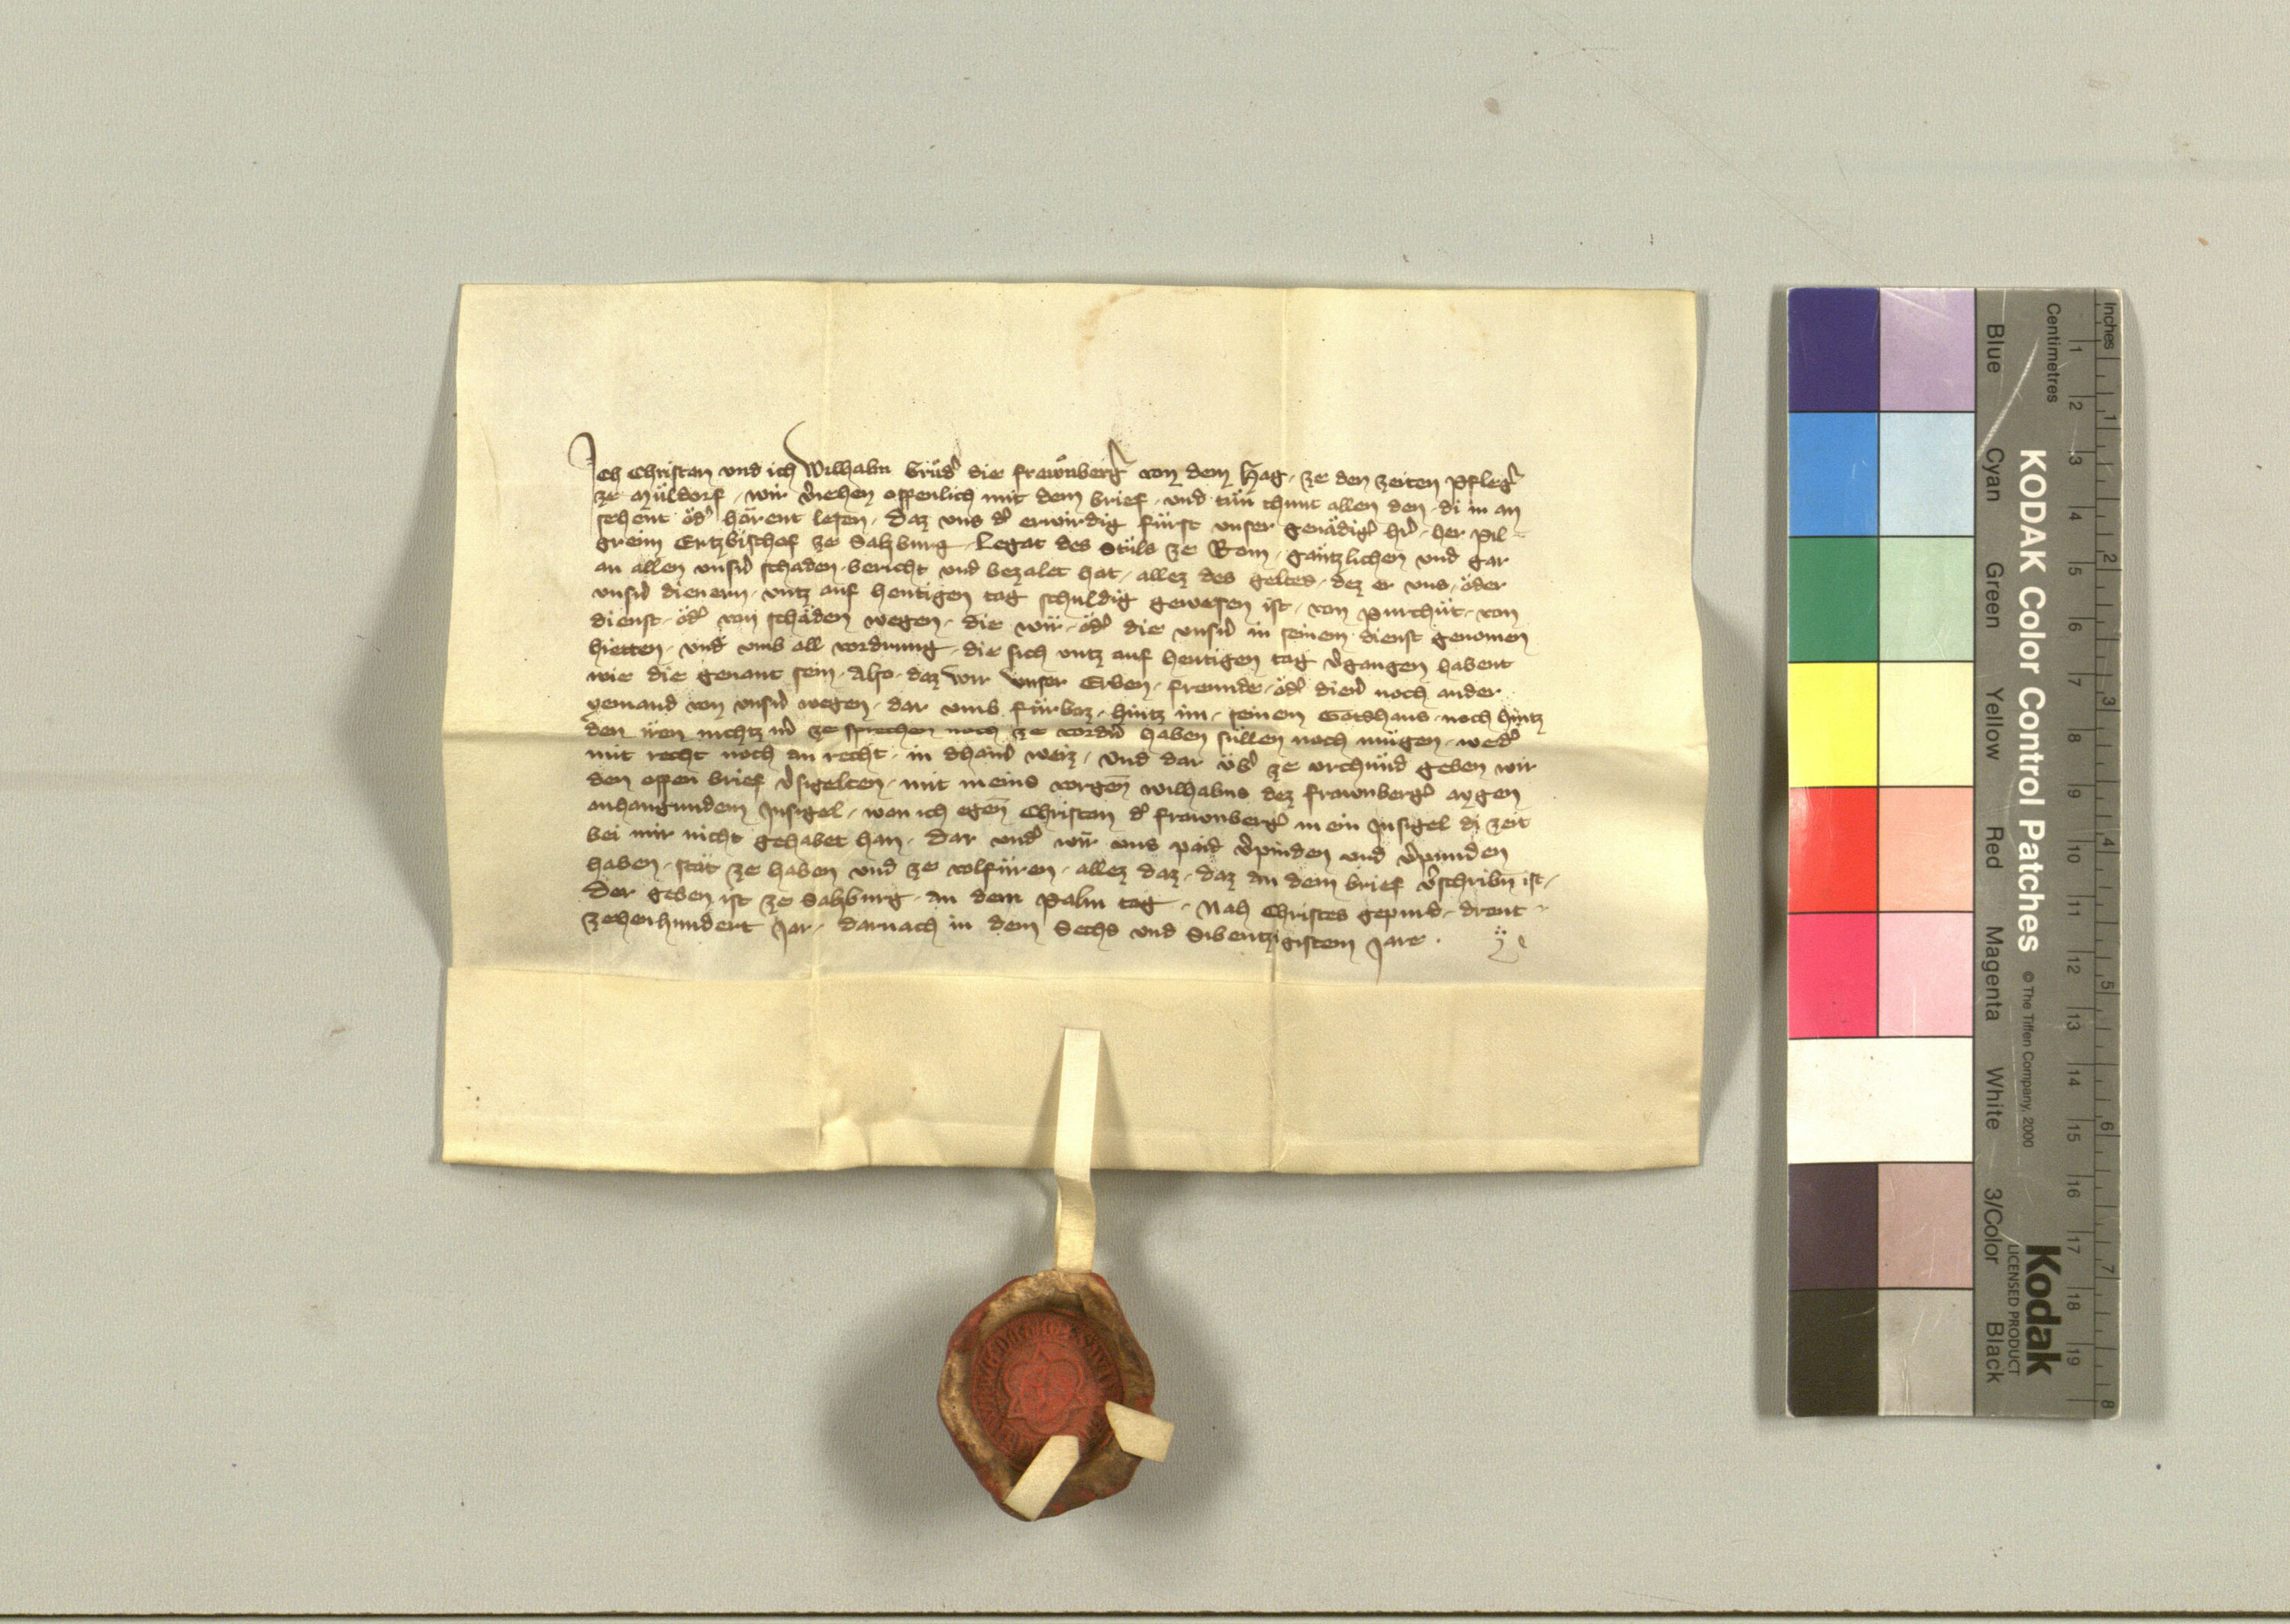 Ich Christan und ich Wilhalm brüder die frawnberger von dem Hag, ze den zeiten pfleger
ze Müldorf, wir veriehen offenlich mit dem brief, und tün chunt allen den, di in an
sehent öder hörent lesen, Daz uns der erwirdig fürst unser genädiger herr, her Pil=
greim Ertzbischof ze Salzburg, Legat des Stüls ze Rom, gäntzlichen und gar
an allen unsern schaden, bericht und bezalet hat, allez des geltes, dez er uns, öder
unsern dienern, untz auf heutigen tag schuldig gewesen ist, von purchüt, von
dienst, öder von schäden wegen, die wir, öder die unsern in seinem dienst genomen
hietten, und umb all vordrung, die sich untz auf heutigen tag vergangen habent
wie die genant sein, Also, daz wir unser Erben, freunde, öder diener noch ander
yemand von unsern wegen, dar umb fürbaz, hintz im, seinem Gotshaus, noch hintz
den iren nichtz mer ze sprechen noch ze vordern haben süllen noch mügen, weder
mit recht noch an recht, in dhainer weiz, Und dar über ze urchünd geben wir
den offen brief versigelten, mit meins vorgen wilhalms dez frawnberger aygen
anhangundem Insigel, wan ich egen Christan der frawnberger mein Insigel di zeit
bei mir nicht gehabet han, Dar under wir uns paid verpinden und verpunden
haben, stät ze haben und ze volfüren, allez daz, daz an dem brief verschriben ist,
Der geben ist ze Salzburg, an dem Palm tag, Nah Christes gepurd, dreut=
zehenhundert Jar, darnach in dem Sechs und Sibentzigistem Jare.
KODAK Color Control Patches
© The Tiffen Company, 2000
Kodak
LICENSED PRODUCT
Inches 1 2 3 4 5 6 7 8
Centimetres 1 2 3 4 5 6 7 8 9 10 11 12 13 14 15 16 17 18 19
Blue Cyan Green Yellow Red Magenta White 3/Color Black